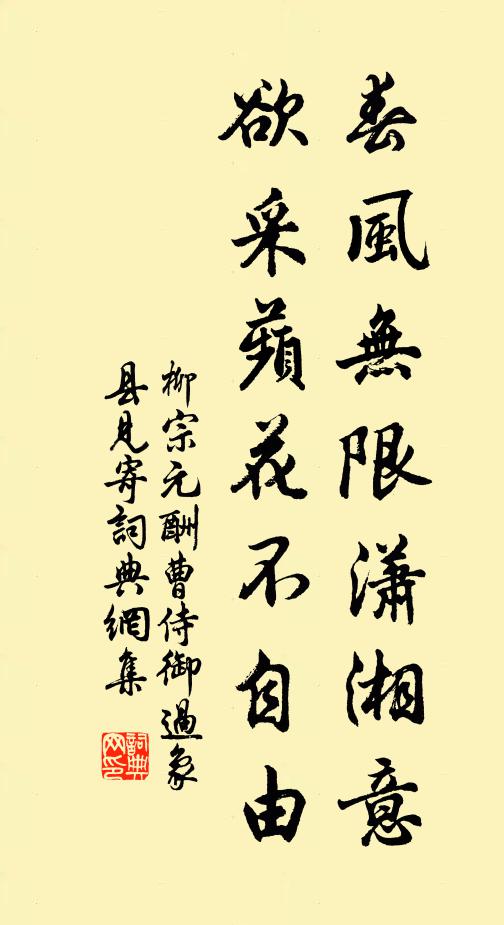 春風無限瀟湘意
欲采蘋花不自由
柳宗元酬曹侍御過象
县見寄詞典網集
詞典
网印